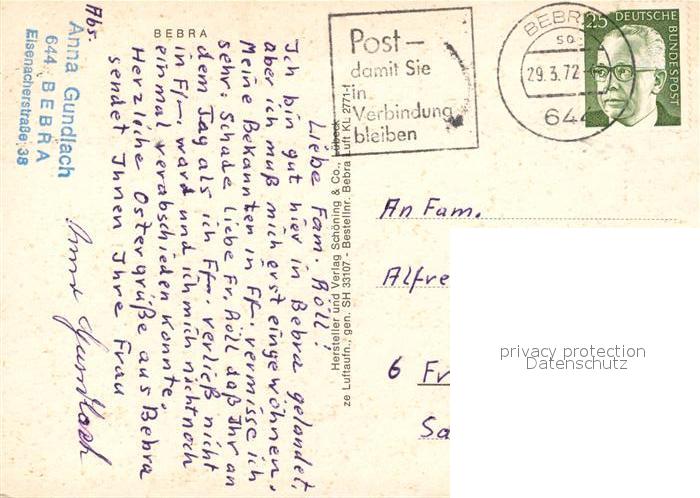 Liebe Fam. Röll!
Ich bin gut hier in Bebra gelandet,
aber ich muß mich erst eingewöhnen.
Meine Bekannten in Ff. vermisse ich
sehr. Schade Liebe Fr. Röll daß Ihr an
dem Tag als ich Ffr. verließ nicht
in Ffr. ward und ich mich nicht noch
einmal verabschieden konnte.
Herzliche Ostergrüße aus Bebra
sendet Ihnen Ihre Frau
Anna Gundlach
Abs.
Anna Gundlach
644 BEBRA
Eisenacherstraße 38
BEBRA
Hersteller und Verlag Schöning & Co., Lübeck
ze Luftaufn., gen. SH 33107 - Bestellnr. Bebra Luft KL 2771-1
Post –
damit Sie
in
Verbindung
bleiben
BEBRA
29.3.72
644
25 DEUTSCHE
BUNDESPOST
An Fam.
Alfre
6 Fr
Sa
privacy protection
Datenschutz